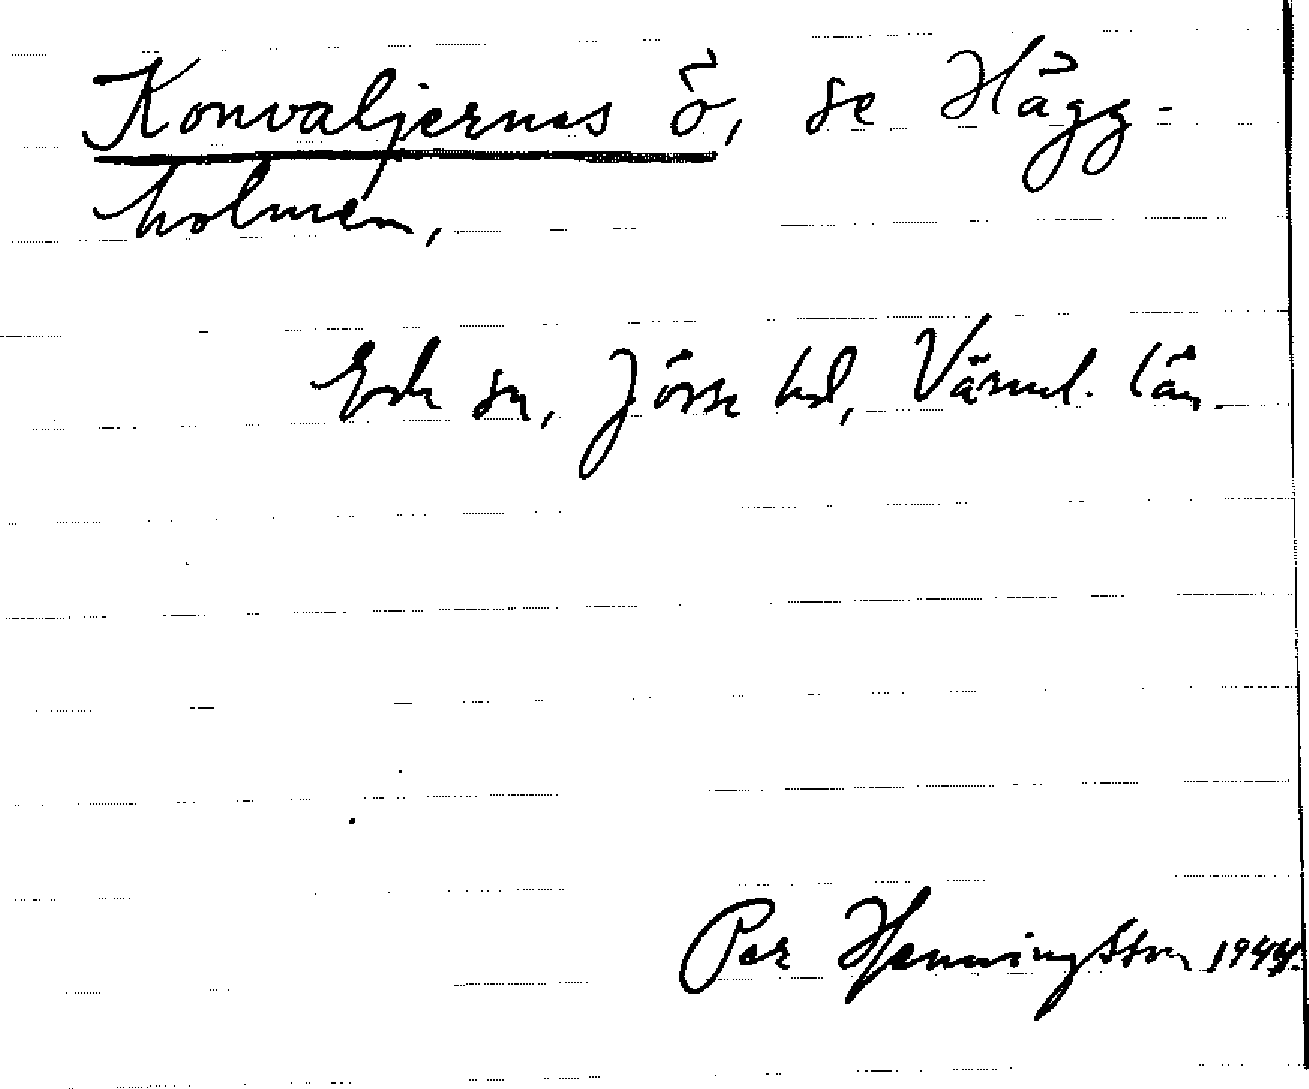 Konvaljernas ö, se Hägg-
holmen,
Eda sn, Jösse hd, Värml. län.
Per Henningsson 1944.